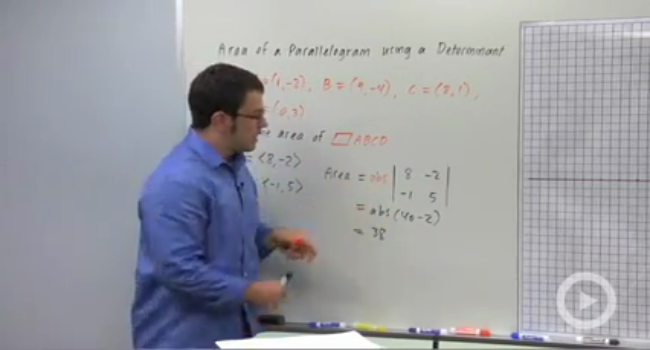 Area of a Parallelogram using a Determinant
=(1,-2), B = (9,-4), C = (8,1),
= (0,3)
area of ▱ABCD
= <8,-2>
<-1,5>
Area = abs | 8 -2 |
| -1 5 |
= abs(40-2)
= 38